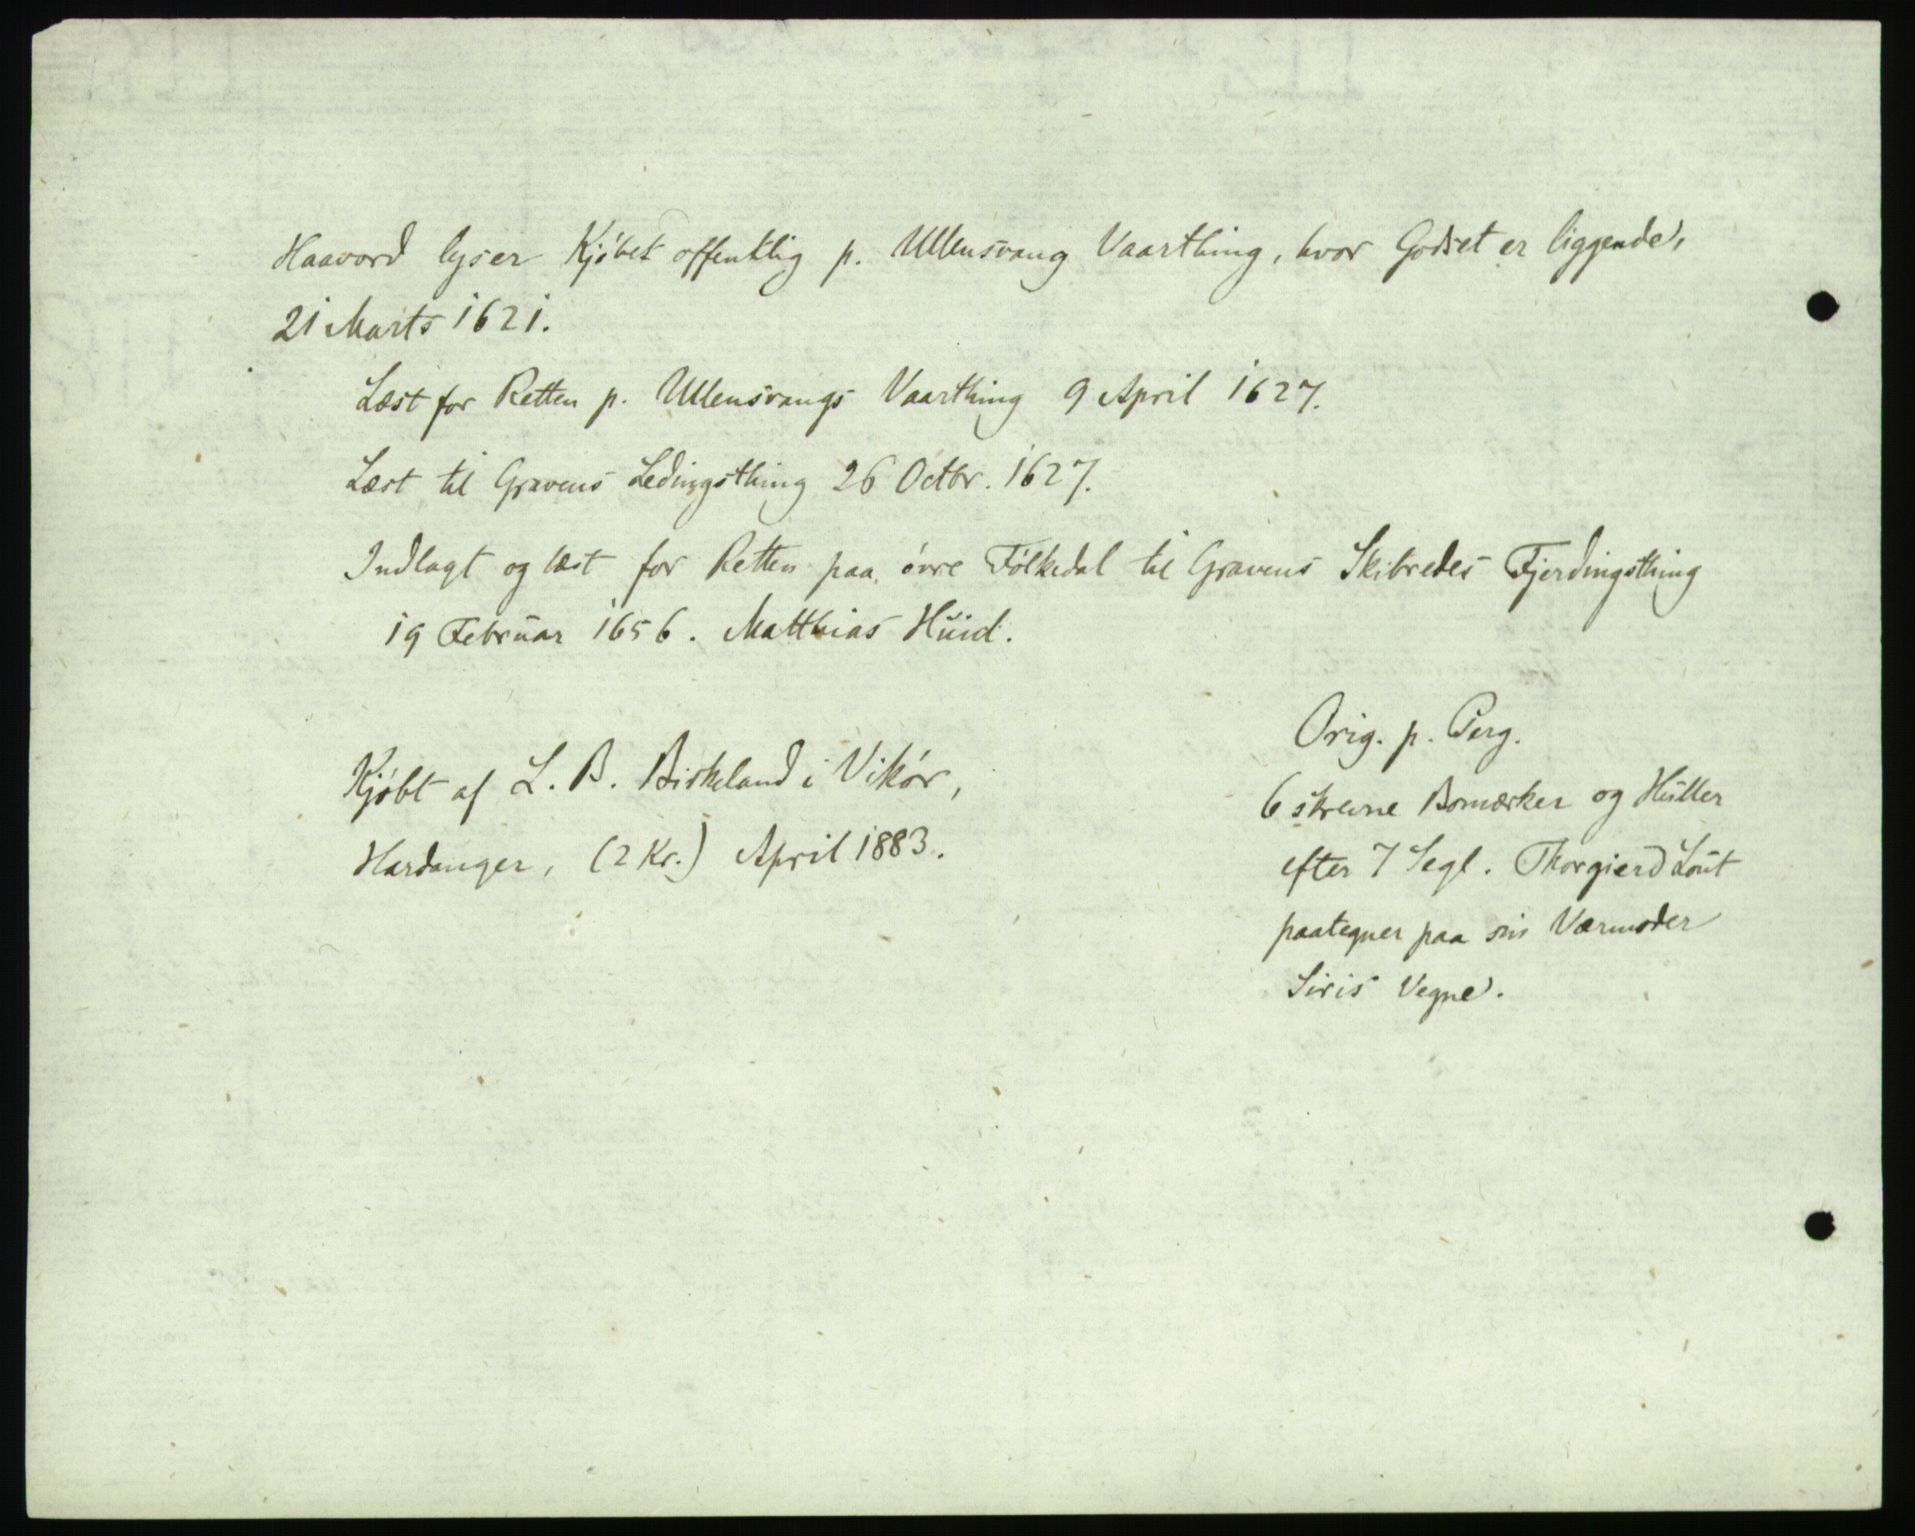 Haavord lyser Kjöbet offentlig p. Ullensvang Vaarthing, hvor Godset er liggende,
21 Marts 1621.
Læst for Retten p. Ullensvangs Vaarthing 9 April 1627.
Læst til Gravens Ledingsthing 26 Octbr. 1627.
Indlagt og læst for Retten paa övre Fölkedal til Gravens Skibredes Fjerdingsthing
19 Februar 1656. Matthias Huid.
Kjöbt af L. B. Birkeland i Vikör,
Hardanger, (2 Kr.) April 1883.
Orig. p. Perg.
6 skrevne Bomærker og Huller
efter 7 Segl. Thorgierd Lout
paategner paa sin Værmoder
Siris Vegne.